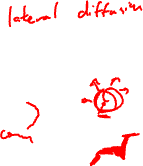 lateral diffusion